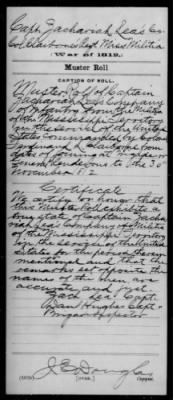 Capt. Zachariah Lea's Co.
Col. Claiborne's Regt. Miss. Militia
(War of 1812.)
Muster Roll
CAPTION OF ROLL.
Muster Roll of Captain
Zachariah Lea's Company
of Infantry from the Militia
of the Mississippi Territory
in the service of the United
States Commanded by Colonel
Ferdinand L. Claiborne from
date of
November 1812
Certificate
I certify on honor that
this Muster Roll exhibits a
true state of Captain Zachariah
Lea's Company of Militia
of the Mississippi Territory
in the service of the United
States for the period herein
mentioned and that the
remarks set opposite the
names of the men are
accurate and just.
Zach Lea Capt.
Dan Hughes Capt.
Brigade Inspector
J. E. Douglas
Copyist.